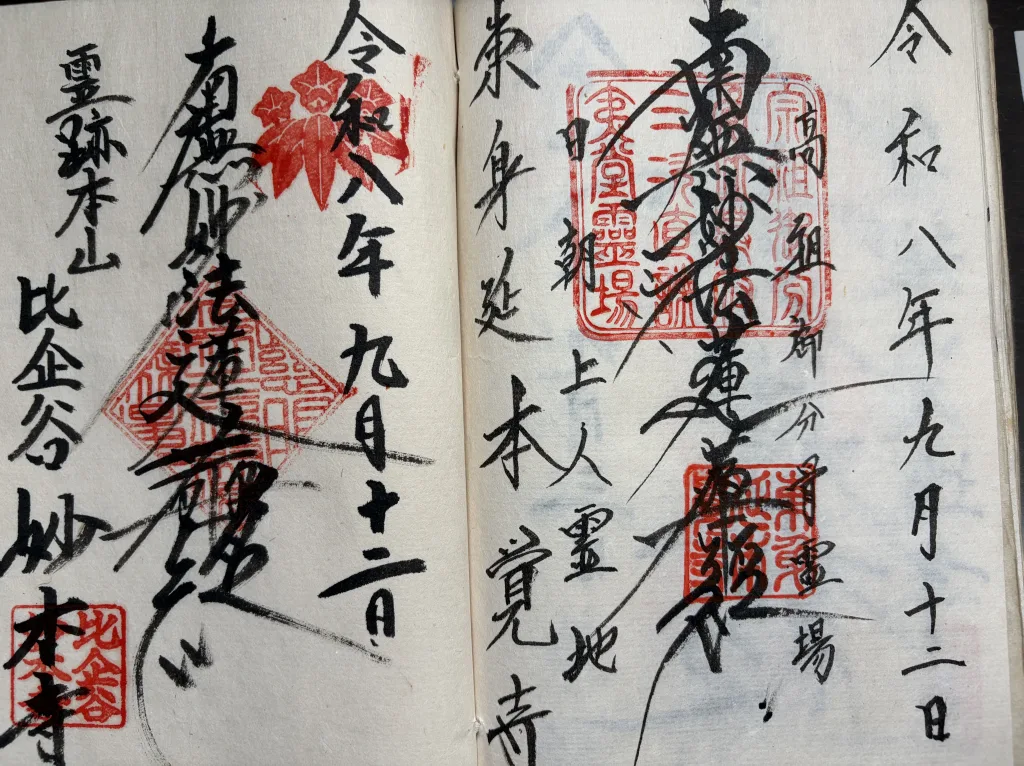 令和八年九月十二日
高祖御分骨霊場
南無妙法蓮華経
日朝上人霊地
東身延 本覚寺
令和八年九月十二日
南無妙法蓮華経
霊跡本山
比企谷 妙本寺